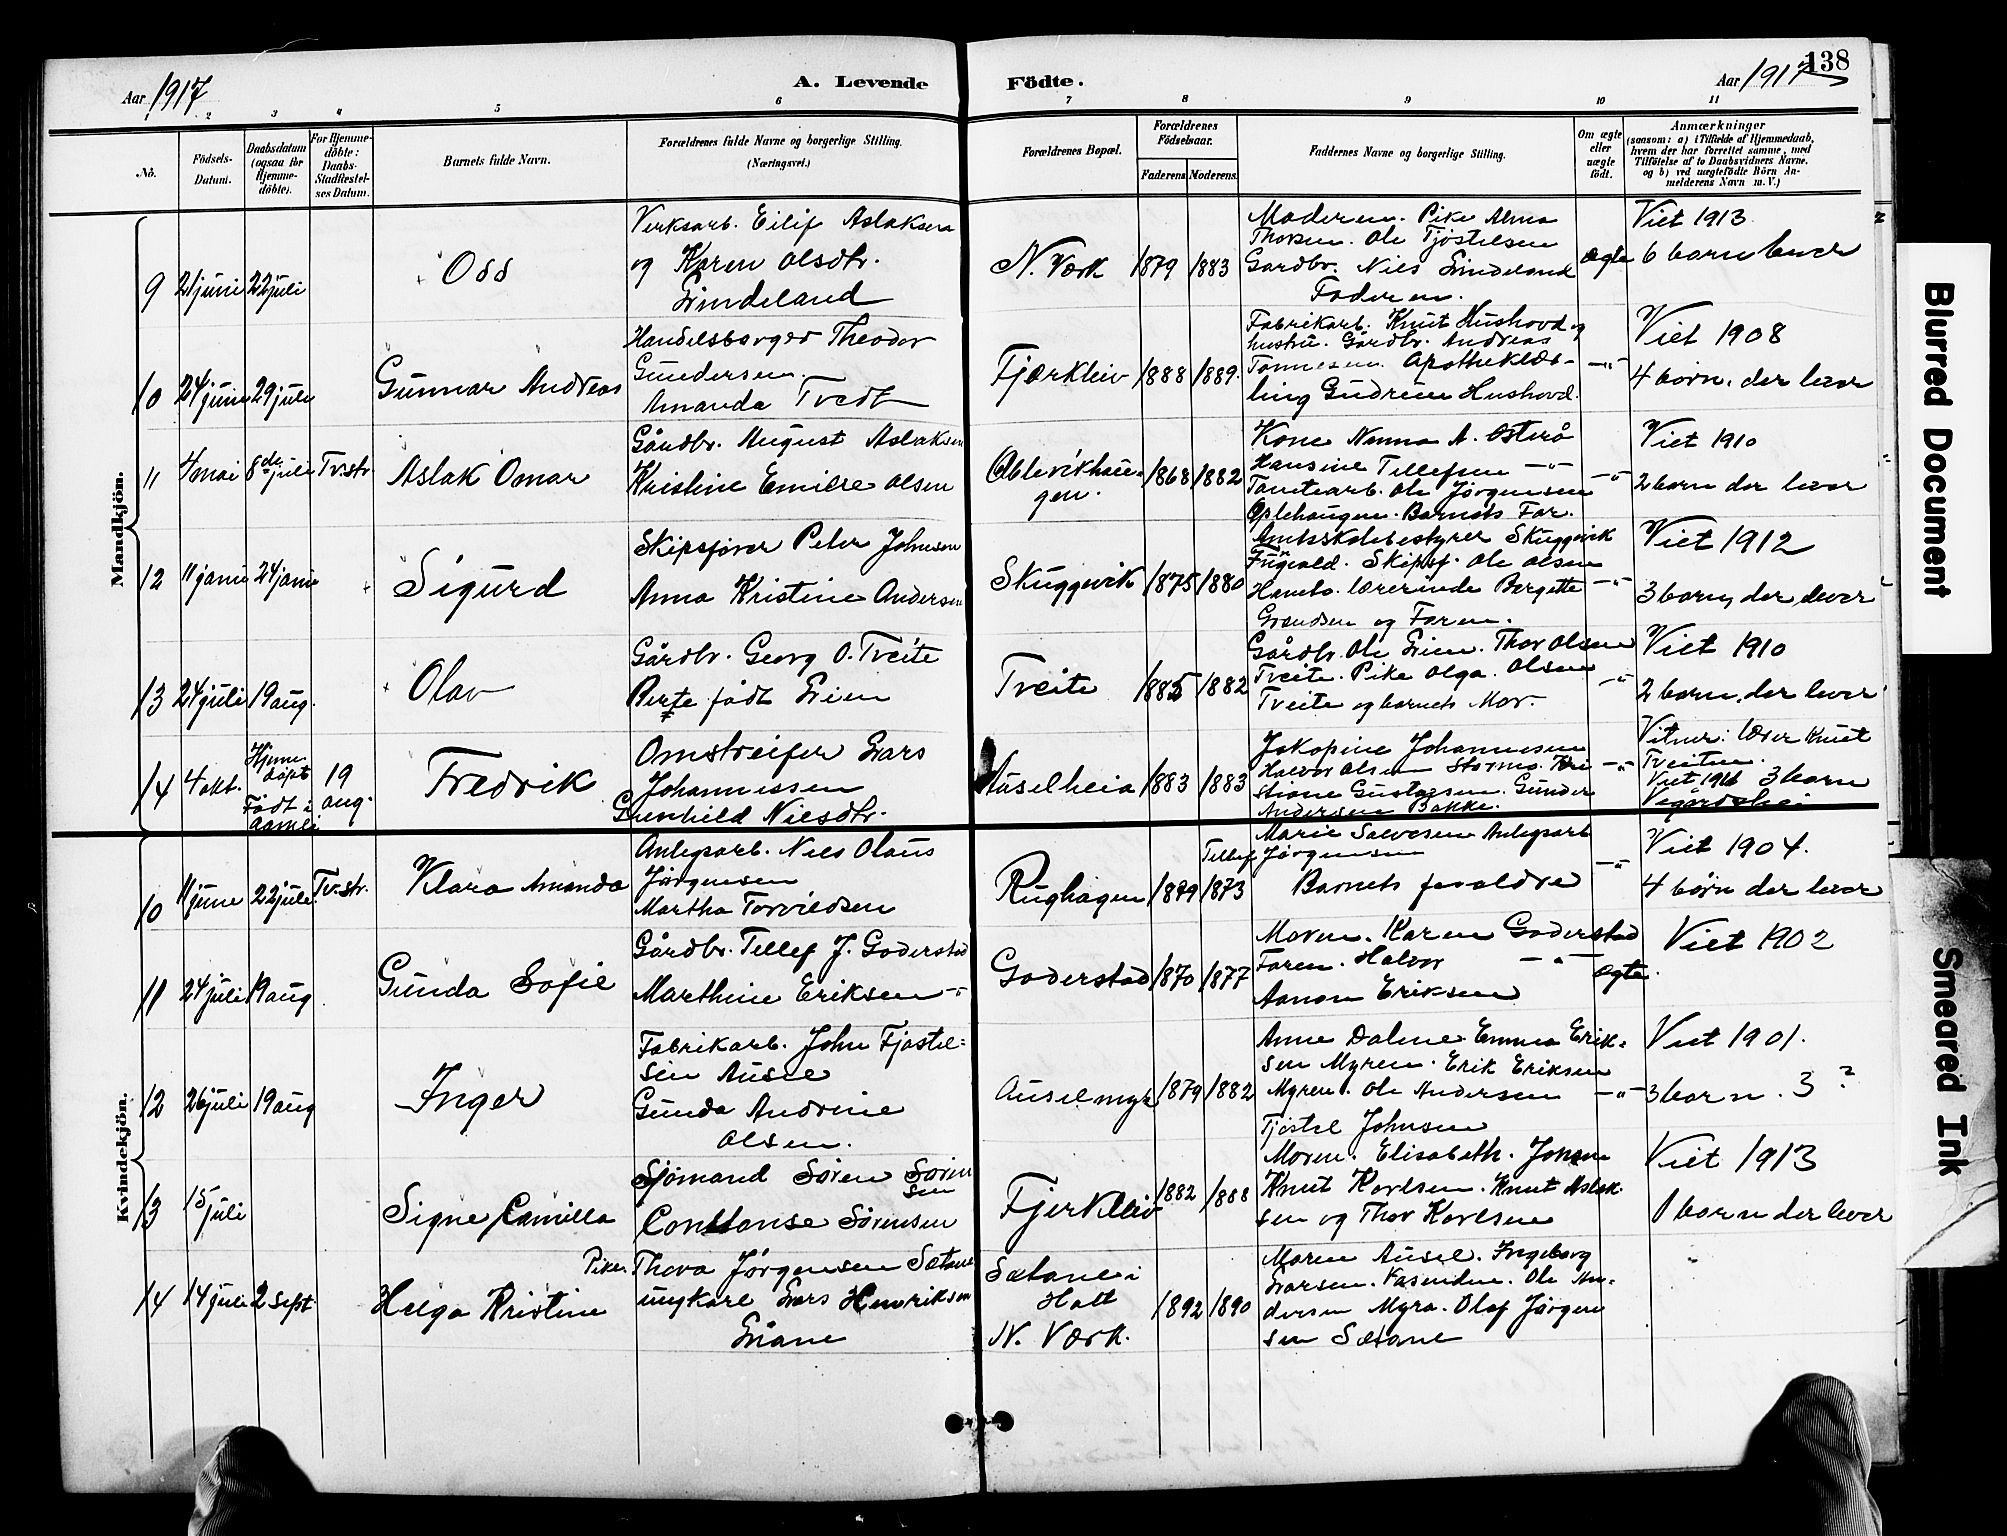 138
Aar 1917
A. Levende
Födte.
Aar 1917
1 2 3 4 5 6 7 8 9 10 11
No.
Födsels-
Datum.
Daabsdatum
(ogsaa for
Hjemme-
döbte).
For Hjemme-
döbte:
Daabs-
Stadfestel-
ses Datum.
Barnets fulde Navn.
Forældrenes fulde Navne og borgerlige Stilling.
(Næringsvei.)
Forældrenes Bopæl.
Forældrenes
Födselsaar.
Faderens
Moderens.
Faddernes Navne og borgerlige Stilling.
Om ægte
eller
uægte
födt.
Anmærkninger
(saasom: a) i Tilfælde af Hjemmedaab,
hvem der har forrettet samme, med
Tilföielse af to Daabsvidners Navne,
og b) ved uægtefödte Börn An-
melderens Navn m. V.)
Mandkjön.
9 21 juni 22 juli
Oss
Verksarb. Eilif Aslaksen
og Karen Olsdtr.
Lindeland
N. Værk 1879 1883
Moderen. Pike Alma
Thorsen. Ole Tjøstelsen
Gardbr. Niels Lindeland
Faderen.
ægte
Viet 1913
6 barn lever
10 24 juni 29 juli
Gunnar Andreas
Handelsborger Theodor
Gundersen.
Amanda Tvedt
Fjærkleiv 1888 1889.
Fabrikarb. Knut Hushovd og
hustru. Gårdbr. Andreas
Tønnesen. Apotheklær-
ling Gudrun Hushovd.
-"-
Viet 1908
4 børn, der lever
11 4 mai 8de juli Tv.str
Aslak Omar
Gårdbr. August Aslaksen
Kristine Emilie Olsen
Oblevikhau-
gen. 1868 1882
Kone Nanna A. Osterå
Hansine Tellefsen -"-
Tomtearb. Ole Jørgensen
Oplehaugen. Barnets Far.
-"-
Viet 1910
2 barn der lever
12 11 juni 24 juni
Sigurd
Skipsfører Peter Johnsen
Anna Kristine Andersen
Skuggevik 1875 1880
Amtsskolebestyrer Skuggevik
Skipsf. Ole Olsen
lærerinde Bergitte
og Faren.
-"-
Viet 1912
3 barn, der lever
13 24 juli 19 aug.
Olav
Gårdbr. Georg O. Tveite
Berte født Lien
Tveite 1885 1882
Gårdbr. Ole Lien. Thor Olsen
Tveite. Pike Olga Olsen
Tveite og barnets Mor.
-"-
Viet 1910
2 barn, der lever
14 4 okt. Hjemme-
døpt
Født i
Aamli
19
aug.
Fredrik
Omstreifer Lars
Johannessen
Gunhild Nielsdtr.
Auselheia 1883 1883
Jakopine Johannesen
Halvor Olsen Stormo. Kri
stiane Gustavsen. Gunder
Andersen Bakke.
-"-
Vitner: lærer Knut
Tveiten.
Viet 1916 3 barn
Vegårdshei
Kvindekjön.
10 11 june 22 juli Tv.str.
Klara Amanda
Anlegsarb. Niels Olaus
Jørgensen
Martha Torvildsen
Rughagen 1879 1873
Marie Salvesen Anlegsarb
Tellef Jørgensen
Barnets foreldre
-"-
Viet 1904.
4 børn der lever
11 24 juli 19 aug
Gunda Sofie
Gårdbr. Tellef J. Goderstad
Marthine Eriksen -"-
Goderstad 1870 1877
Moren. Karen Goderstad
Faren. Halvor -"-
Aanon Eriksen
ægte.
Viet 1902
12 26 juli 19 aug
Inger
Fabrikarb. John Tjøstel=
sen Ausel
Gunda Andrine
Olsen.
Auselmyr 1879 1882
Anne Dalene Emma Erik=
sen Myren. Erik Eriksen
Myren. Ole Andersen
Tjøstel Johnsen
-"-
Viet 1901.
3 barn. 3 ?
13 15 juli
Signe Camilla
Sjømand Søren Søren
sen
Constanse Sørensen
Fjerkleiv 1882 1888
Moren. Elisabeth. Jonsen
Knut Karlsen. Knut Aslak-
sen og Thor Karlsen
Viet 1913
1 barn der lever
14 14 juli 2 sept
Helga Kristine
Pike. Thora Jørgensen Sætane
ungkarl Lars Henriksen
Liane
Sætane i
Holt
N. Værk. 1892 1890
Maren Ausel. Ingeborg
Larsen. Vasenden. Ole An-
dersen Myra. Olaf Jørgen
sen Sætane
Blurred Document
Smeared Ink